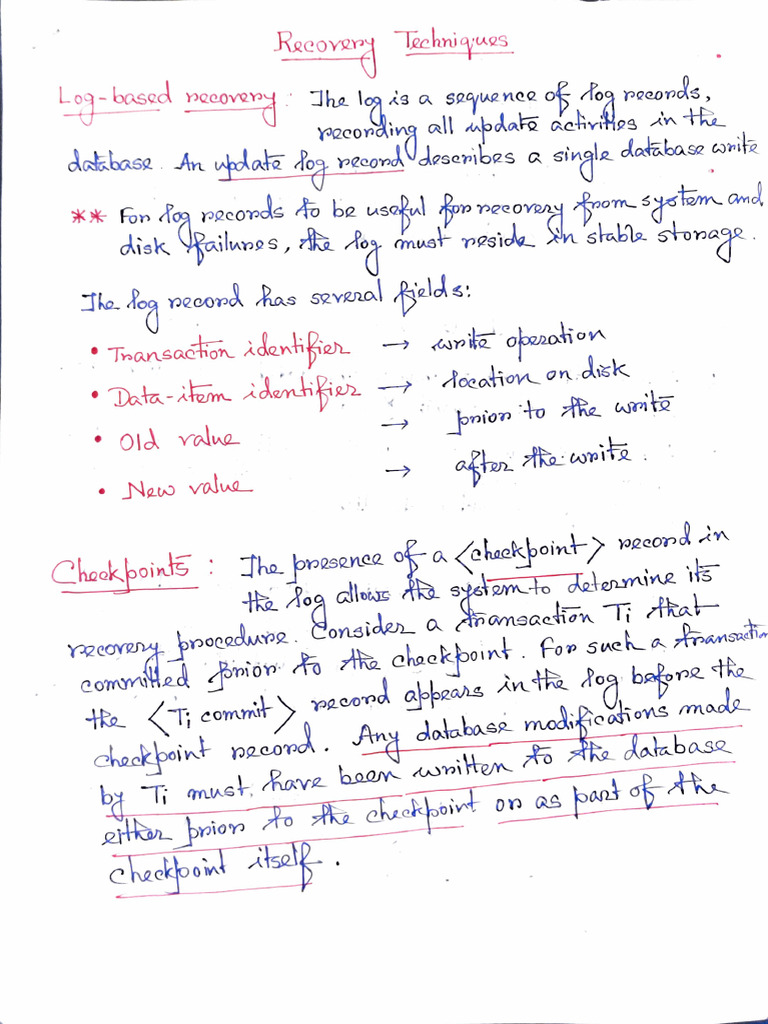 Recovery Techniques
Log-based recovery : The log is a sequence of log records,
recording all update activities in the
database. An update log record describes a single database write
** For log records to be useful for recovery from system and
disk failures, the log must reside in stable storage.
The log record has several fields:
• Transaction identifier → write operation
• Data-item identifier → location on disk
• Old value → prior to the write
• New value → after the write.
Checkpoints : The presence of a <checkpoint> record in
the log allows the system to determine its
recovery procedure. Consider a transaction Ti that
committed prior to the checkpoint. For such a transaction
the <Ti commit> record appears in the log before the
checkpoint record. Any database modifications made
by Ti must have been written to the database
either prior to the checkpoint or as part of the
checkpoint itself.